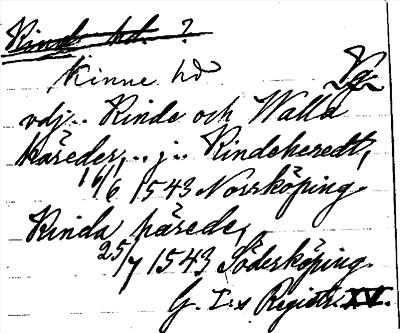 Rinde hd. ?
Kinne hd Vg
vdj.. Rinde och Walla
häreder, .. j .. Rindeheredt,
16/6 1543 Norrköping
Rinda härede,
25/7 1543 Söderköping.
G. I:s Registr. XV.